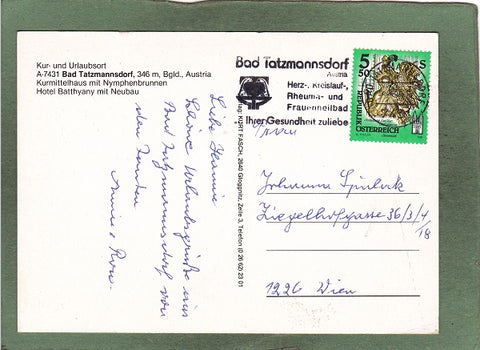 Kur- und Urlaubsort
A-7431 Bad Tatzmannsdorf, 346 m, Bgld., Austria
Kurmittelhaus mit Nymphenbrunnen
Hotel Batthyany mit Neubau
Liebe
Schöne Urlaubsgrüße aus
Bad Tatzmannsdorf von
den Tanten
Rosa
Verlag KURT FASCH, 2640 Gloggnitz, Zeile 3, Telefon (0 26 62) 23 01
Bad Tatzmannsdorf
Austria
Herz-, Kreislauf-,
Rheuma- und
Frauenheilbad
Ihrer Gesundheit zuliebe
5 S
50
REPUBLIK
ÖSTERREICH
Johanna
Ziegelhofgasse 36/3/4/
18
1226 Wien